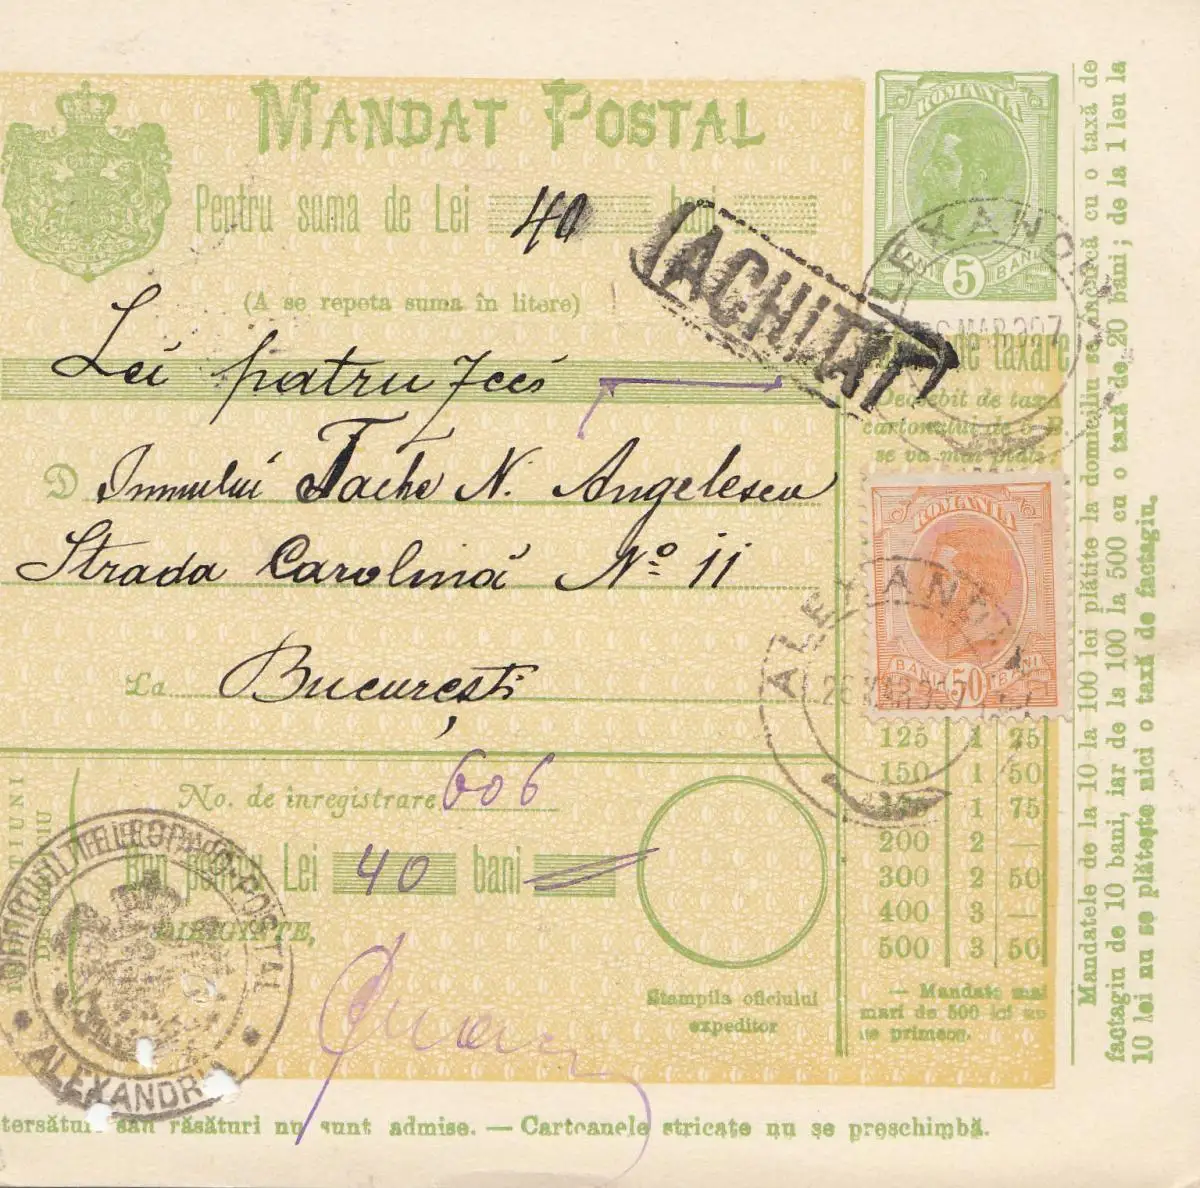 MANDAT POSTAL
Pentru suma de Lei 40 bani
ACHITAT
(A se repeta suma în litere)
Lei patru zeci
D Domnului Tache N. Angelescu
Strada Carolina No 11
La București
No. de înregistrare 606
Bun pentru Lei 40 bani
DIRIGINTE,
Stampila oficiului
expeditor
TELEGRAFO-POSTAL
ALEXANDRIA
ROMANIA
5 BANI
ALEXANDRIA
MAR 907
de taxare
Deosebit de taxa
cartonului de 5 B.
se va mai plăti
ROMANIA
BANI 50 BANI
ALEXANDRIA
26 MAR 907
125 1 25
150 1 50
1 75
200 2 —
300 2 50
400 3 —
500 3 50
— Mandate mai
mari de 500 lei nu
se primesc.
Mandatele de la 10 la 100 lei plătite la domiciliu se încarcă cu o taxă de
factagiu de 10 bani, iar de la 100 la 500 cu o taxă de 20 bani; de la 1 leu la
10 lei nu se plătește nici o taxă de factagiu.
ștersături sau răsături nu sunt admise. — Cartoanele stricate nu se preschimbă.